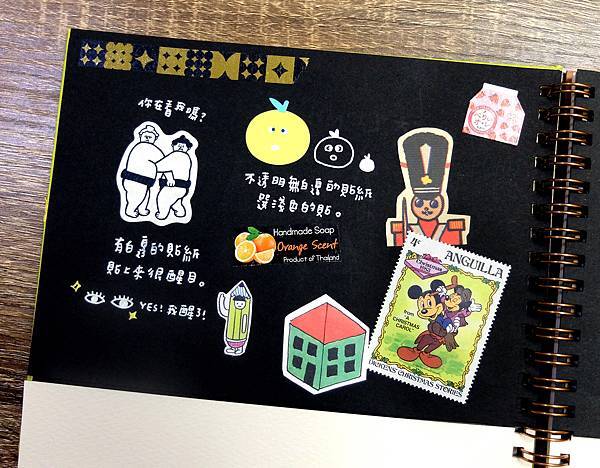 你在看我嗎?
不透明無白邊的貼紙
選淺色的貼。
Handmade Soap
Orange Scent
Product of Thailand
有白邊的貼紙
貼上來很醒目。
YES! 我醒了!
4¢
Christmas
ANGUILLA
from
"A
CHRISTMAS
CAROL"
DICKENS CHRISTMAS STORIES